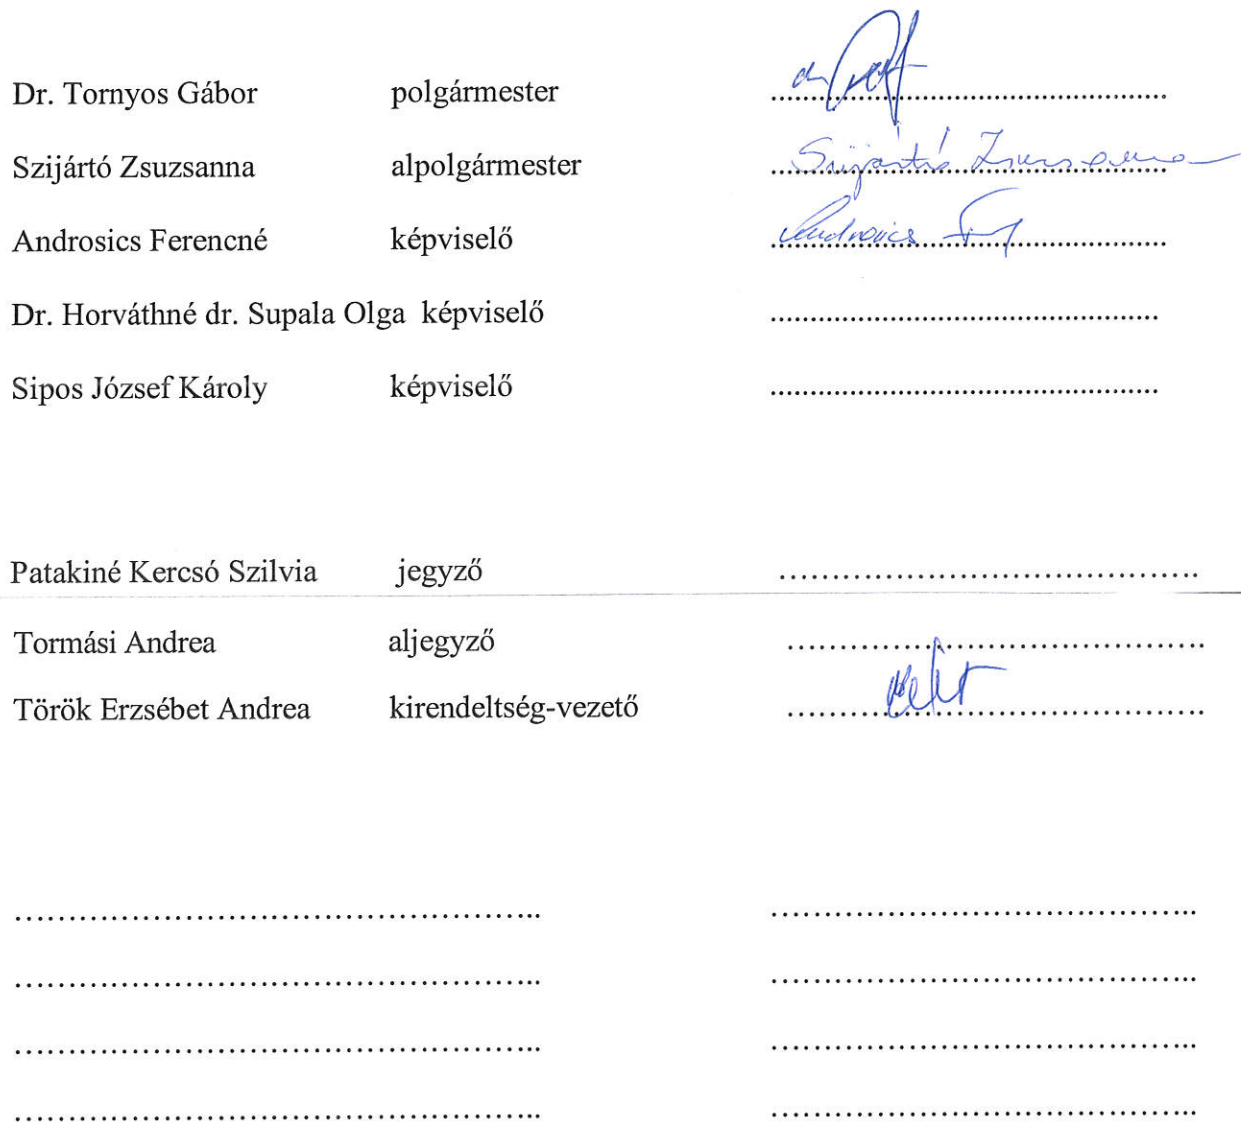 Dr. Tornyos Gábor polgármester ....................................................
Szijártó Zsuzsanna alpolgármester Szijártó Zsuzsanna
Androsics Ferencné képviselő Androsics
Dr. Horváthné dr. Supala Olga képviselő ....................................................
Sipos József Károly képviselő ....................................................
Patakiné Kercsó Szilvia jegyző ....................................................
Tormási Andrea aljegyző ....................................................
Török Erzsébet Andrea kirendeltség-vezető ....................................................